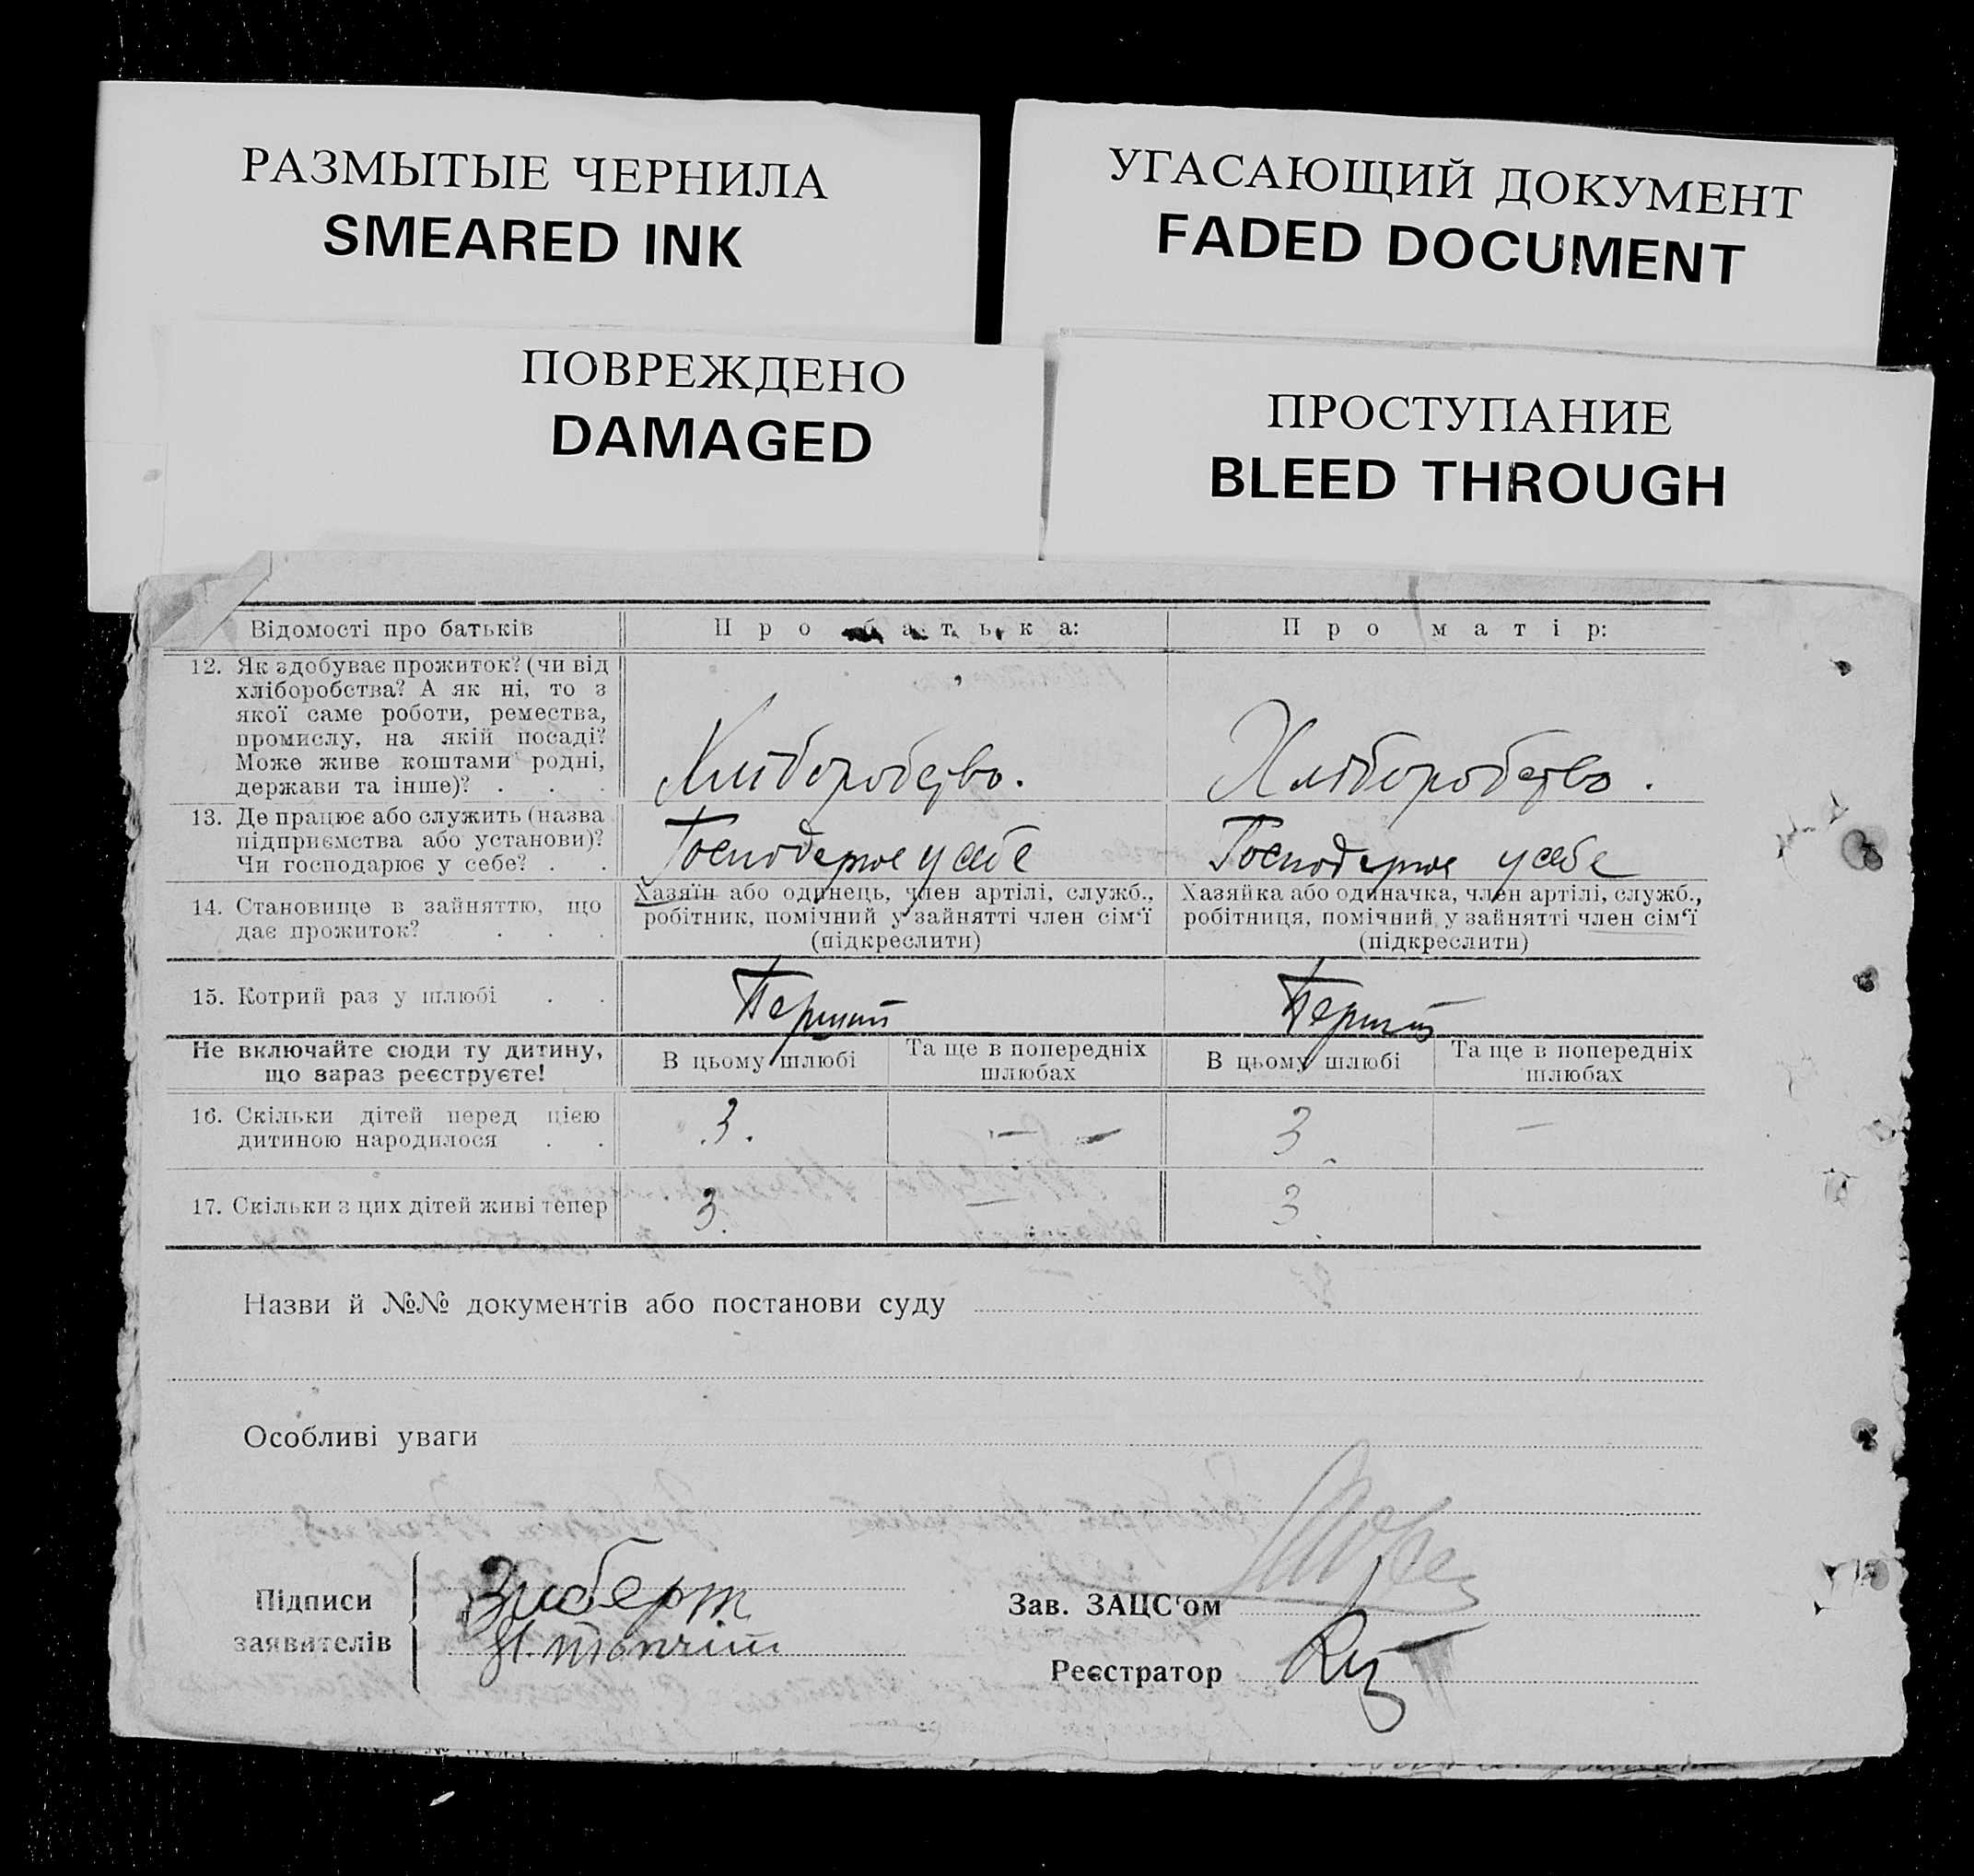 РАЗМЫТЫЕ ЧЕРНИЛА
SMEARED INK
УГАСАЮЩИЙ ДОКУМЕНТ
FADED DOCUMENT
ПОВРЕЖДЕНО
DAMAGED
ПРОСТУПАНИЕ
BLEED THROUGH
Відомості про батьків
Про батька:
Про матір:
12. Як здобуває прожиток? (чи від
хліборобства? А як ні, то з
якої саме роботи, ремества,
промислу, на якій посаді?
Може живе коштами родні,
держави та інше)? . . .
Хліборобство.
Хліборобство.
13. Де працює або служить (назва
підприємства або установи)?
Чи господарює у себе? . .
Господарює у себе
Господарює у себе
14. Становище в зайняттю, що
дає прожиток? . . .
Хазяїн або одинець, член артілі, служб.,
робітник, помічний у зайнятті член сім'ї
(підкреслити)
Хазяйка або одиначка, член артілі, служб.,
робітниця, помічний у зайнятті член сім'ї
(підкреслити)
15. Котрий раз у шлюбі . .
Перший
Перший
Не включайте сюди ту дитину,
що зараз реєструєте!
В цьому шлюбі
Та ще в попередніх
шлюбах
В цьому шлюбі
Та ще в попередніх
шлюбах
16. Скільки дітей перед цією
дитиною народилося . .
3.
—
3
—
17. Скільки з цих дітей живі тепер
3.
—
3
Назви й №№ документів або постанови суду
Особливі уваги
Підписи
заявителів
Зиберт
Зав. ЗАЦС'ом
Реєстратор